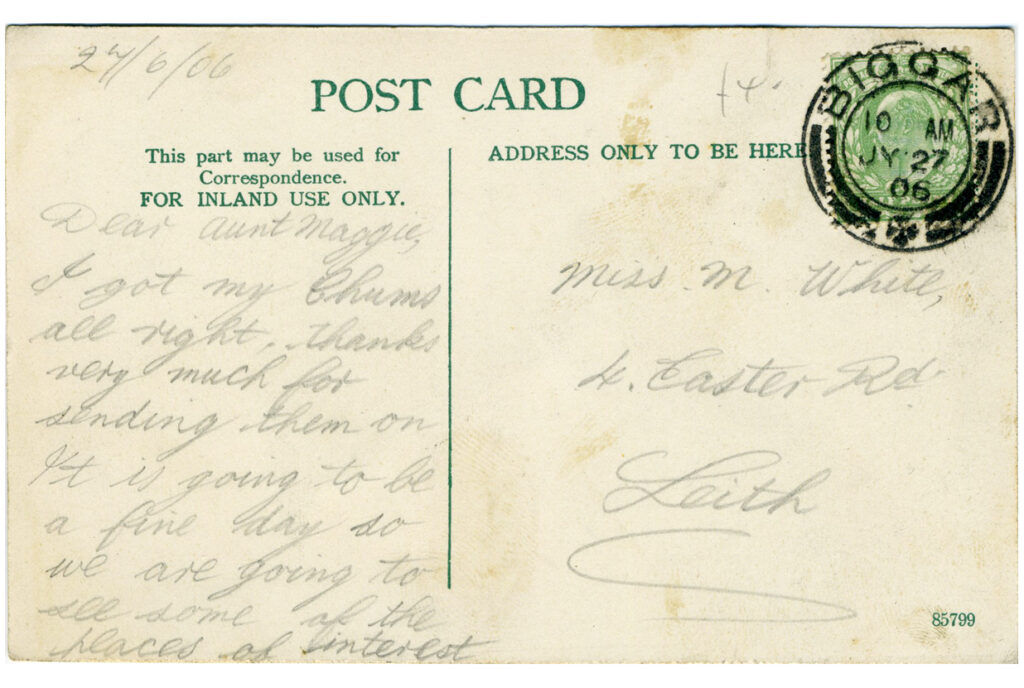 27/6/06
POST CARD
This part may be used for
Correspondence.
FOR INLAND USE ONLY.
Dear Aunt Maggie,
I got my Chums
all right, thanks
very much for
sending them on
It is going to be
a fine day so
we are going to
see some of the
places of interest
ADDRESS ONLY TO BE HERE
BIGGAR
10 AM
JY 27
06
Miss M. White,
4. Easter Rd.
Leith
85799